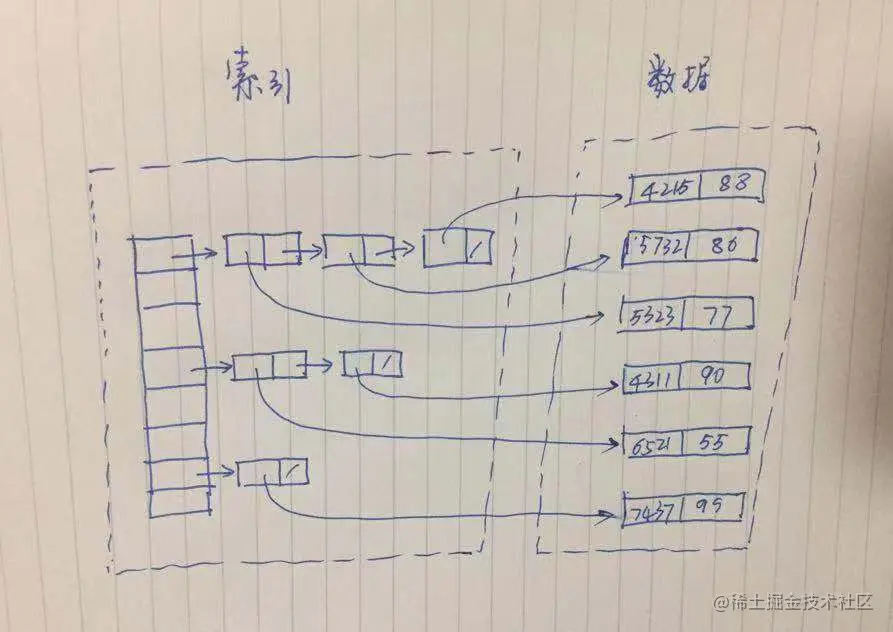 索引
数据
4215 88
5732 86
5323 77
4311 90
6521 55
7437 95
@稀土掘金技术社区